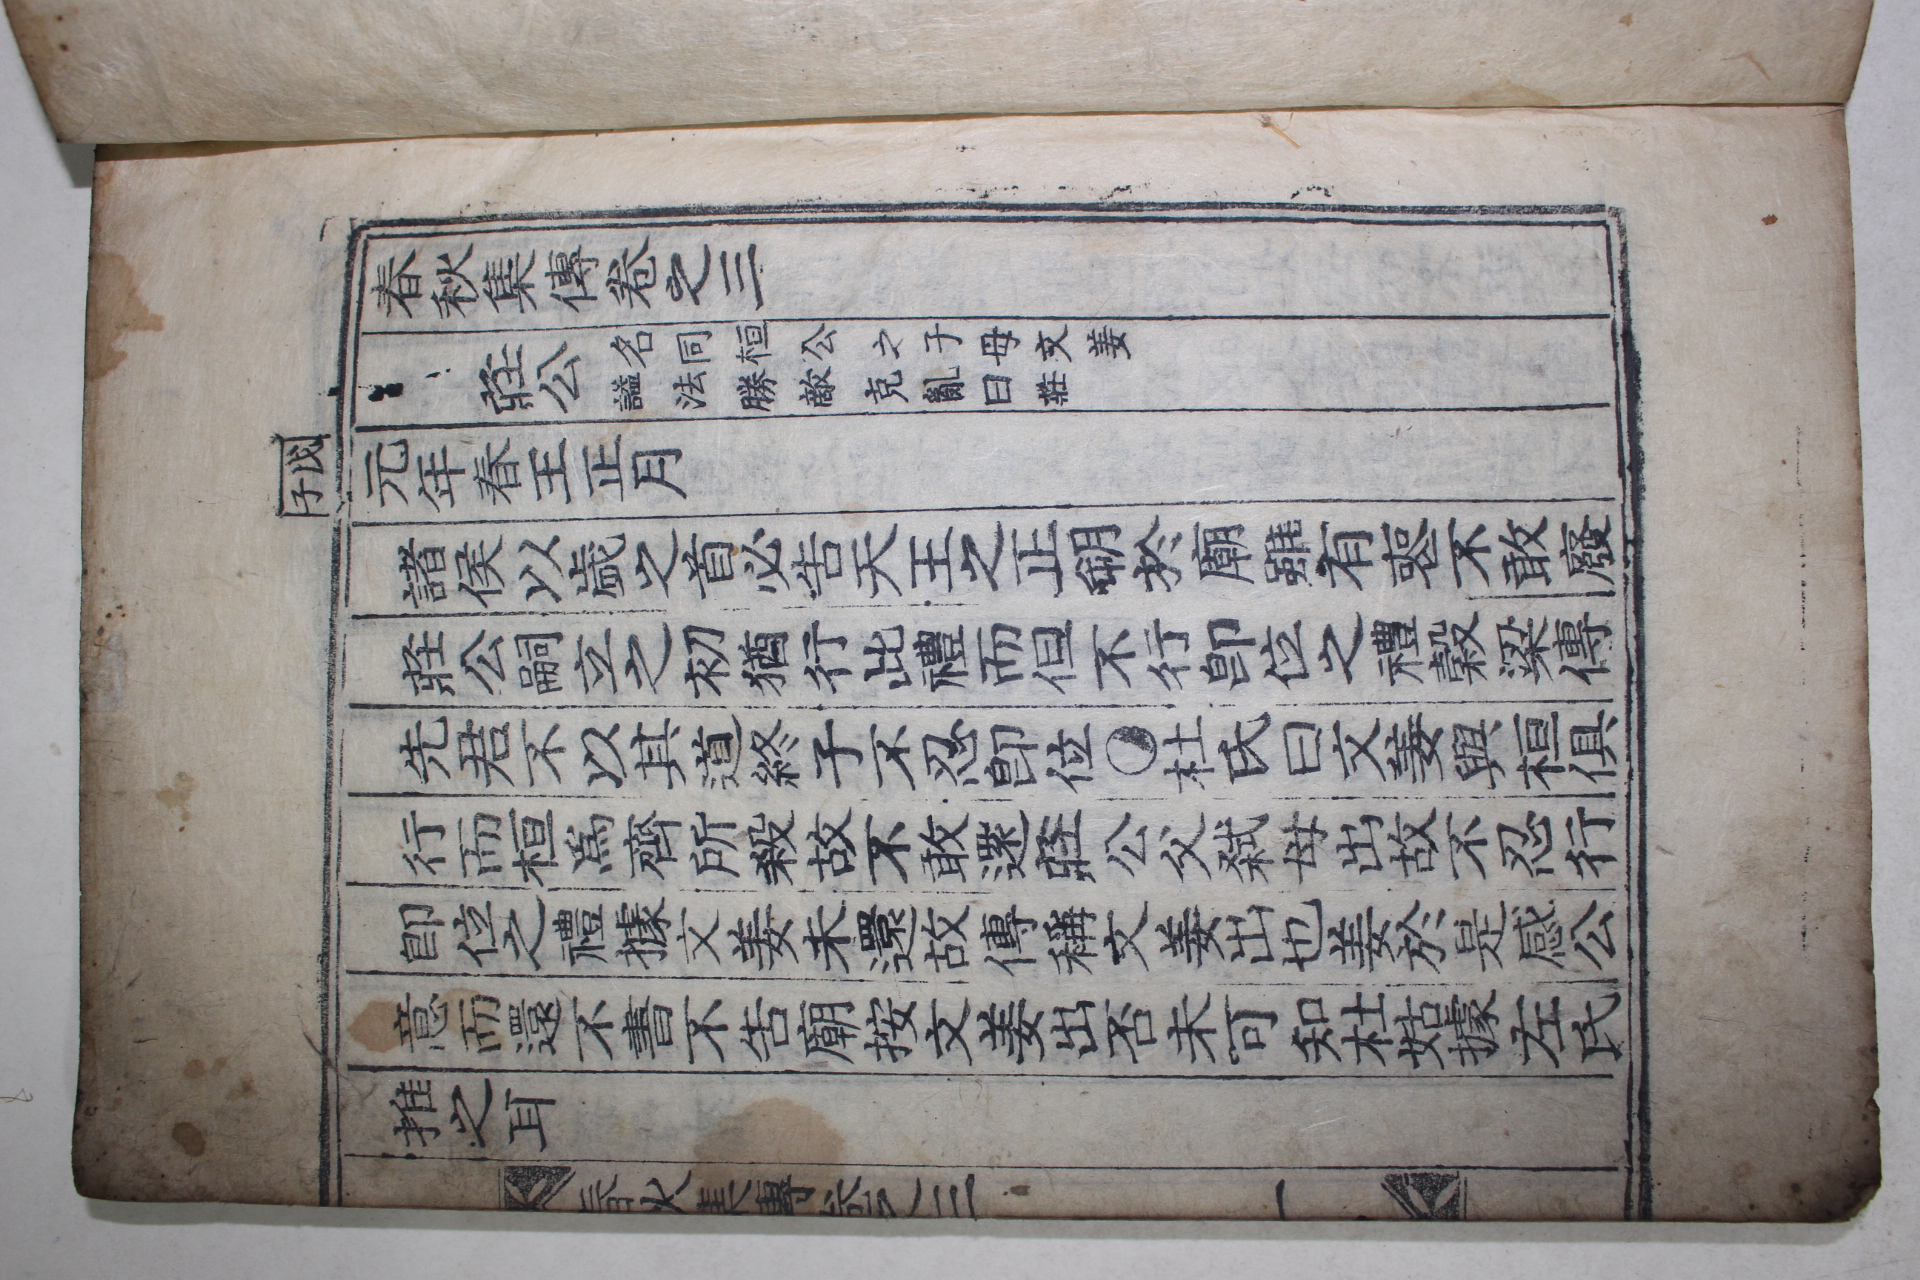 春秋集傳卷之三
莊公
名同桓公之子母文姜
謚法勝敵克亂曰莊
戊子
元年春王正月
諸侯以歲之首必告天王之正朔於廟雖有喪不敢廢
莊公嗣立之初猶行此禮而但不行卽位之禮穀梁傳
先君不以其道終子不忍卽位○杜氏曰文姜與桓俱
行而桓爲齊所殺故不敢還莊公父弑母出故不忍行
卽位之禮據文姜未還故傳稱文姜出也姜於是感公
意而還不書不告廟按文姜出否未可知杜姑據左氏
推之耳
春秋集傳卷之三
一